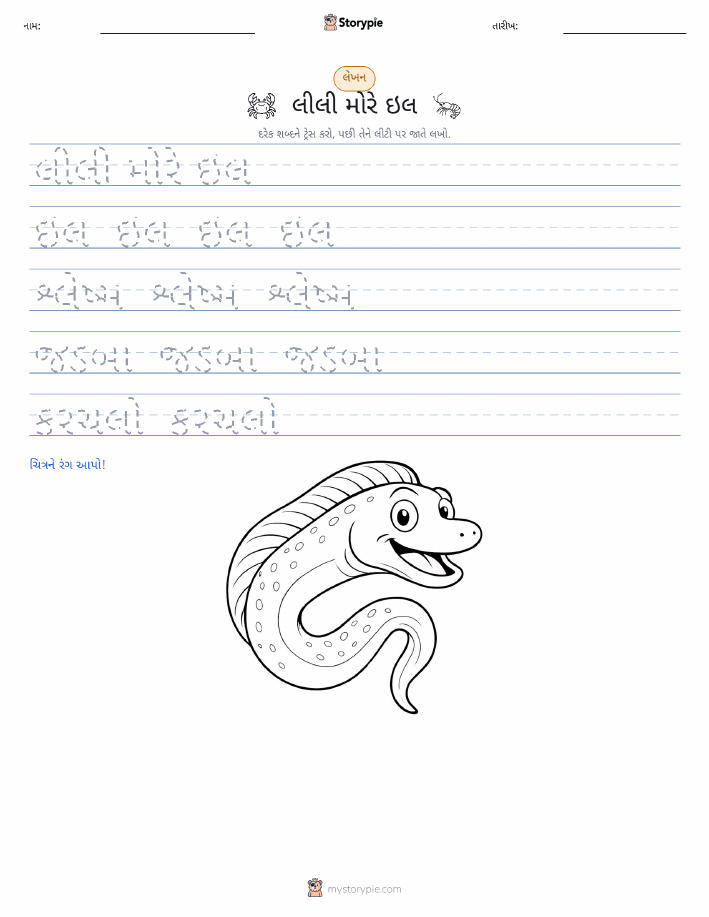 નામ:
Storypie
તારીખ:
લેખન
લીલી મોરે ઇલ
દરેક શબ્દને ટ્રેસ કરો, પછી તેને લીટી પર જાતે લખો.
લીલી મોરે ઇલ
ઇલ ઇલ ઇલ ઇલ
શ્લેષ્મ શ્લેષ્મ શ્લેષ્મ
જડબા જડબા જડબા
કરચલો કરચલો
ચિત્રને રંગ આપો!
mystorypie.com